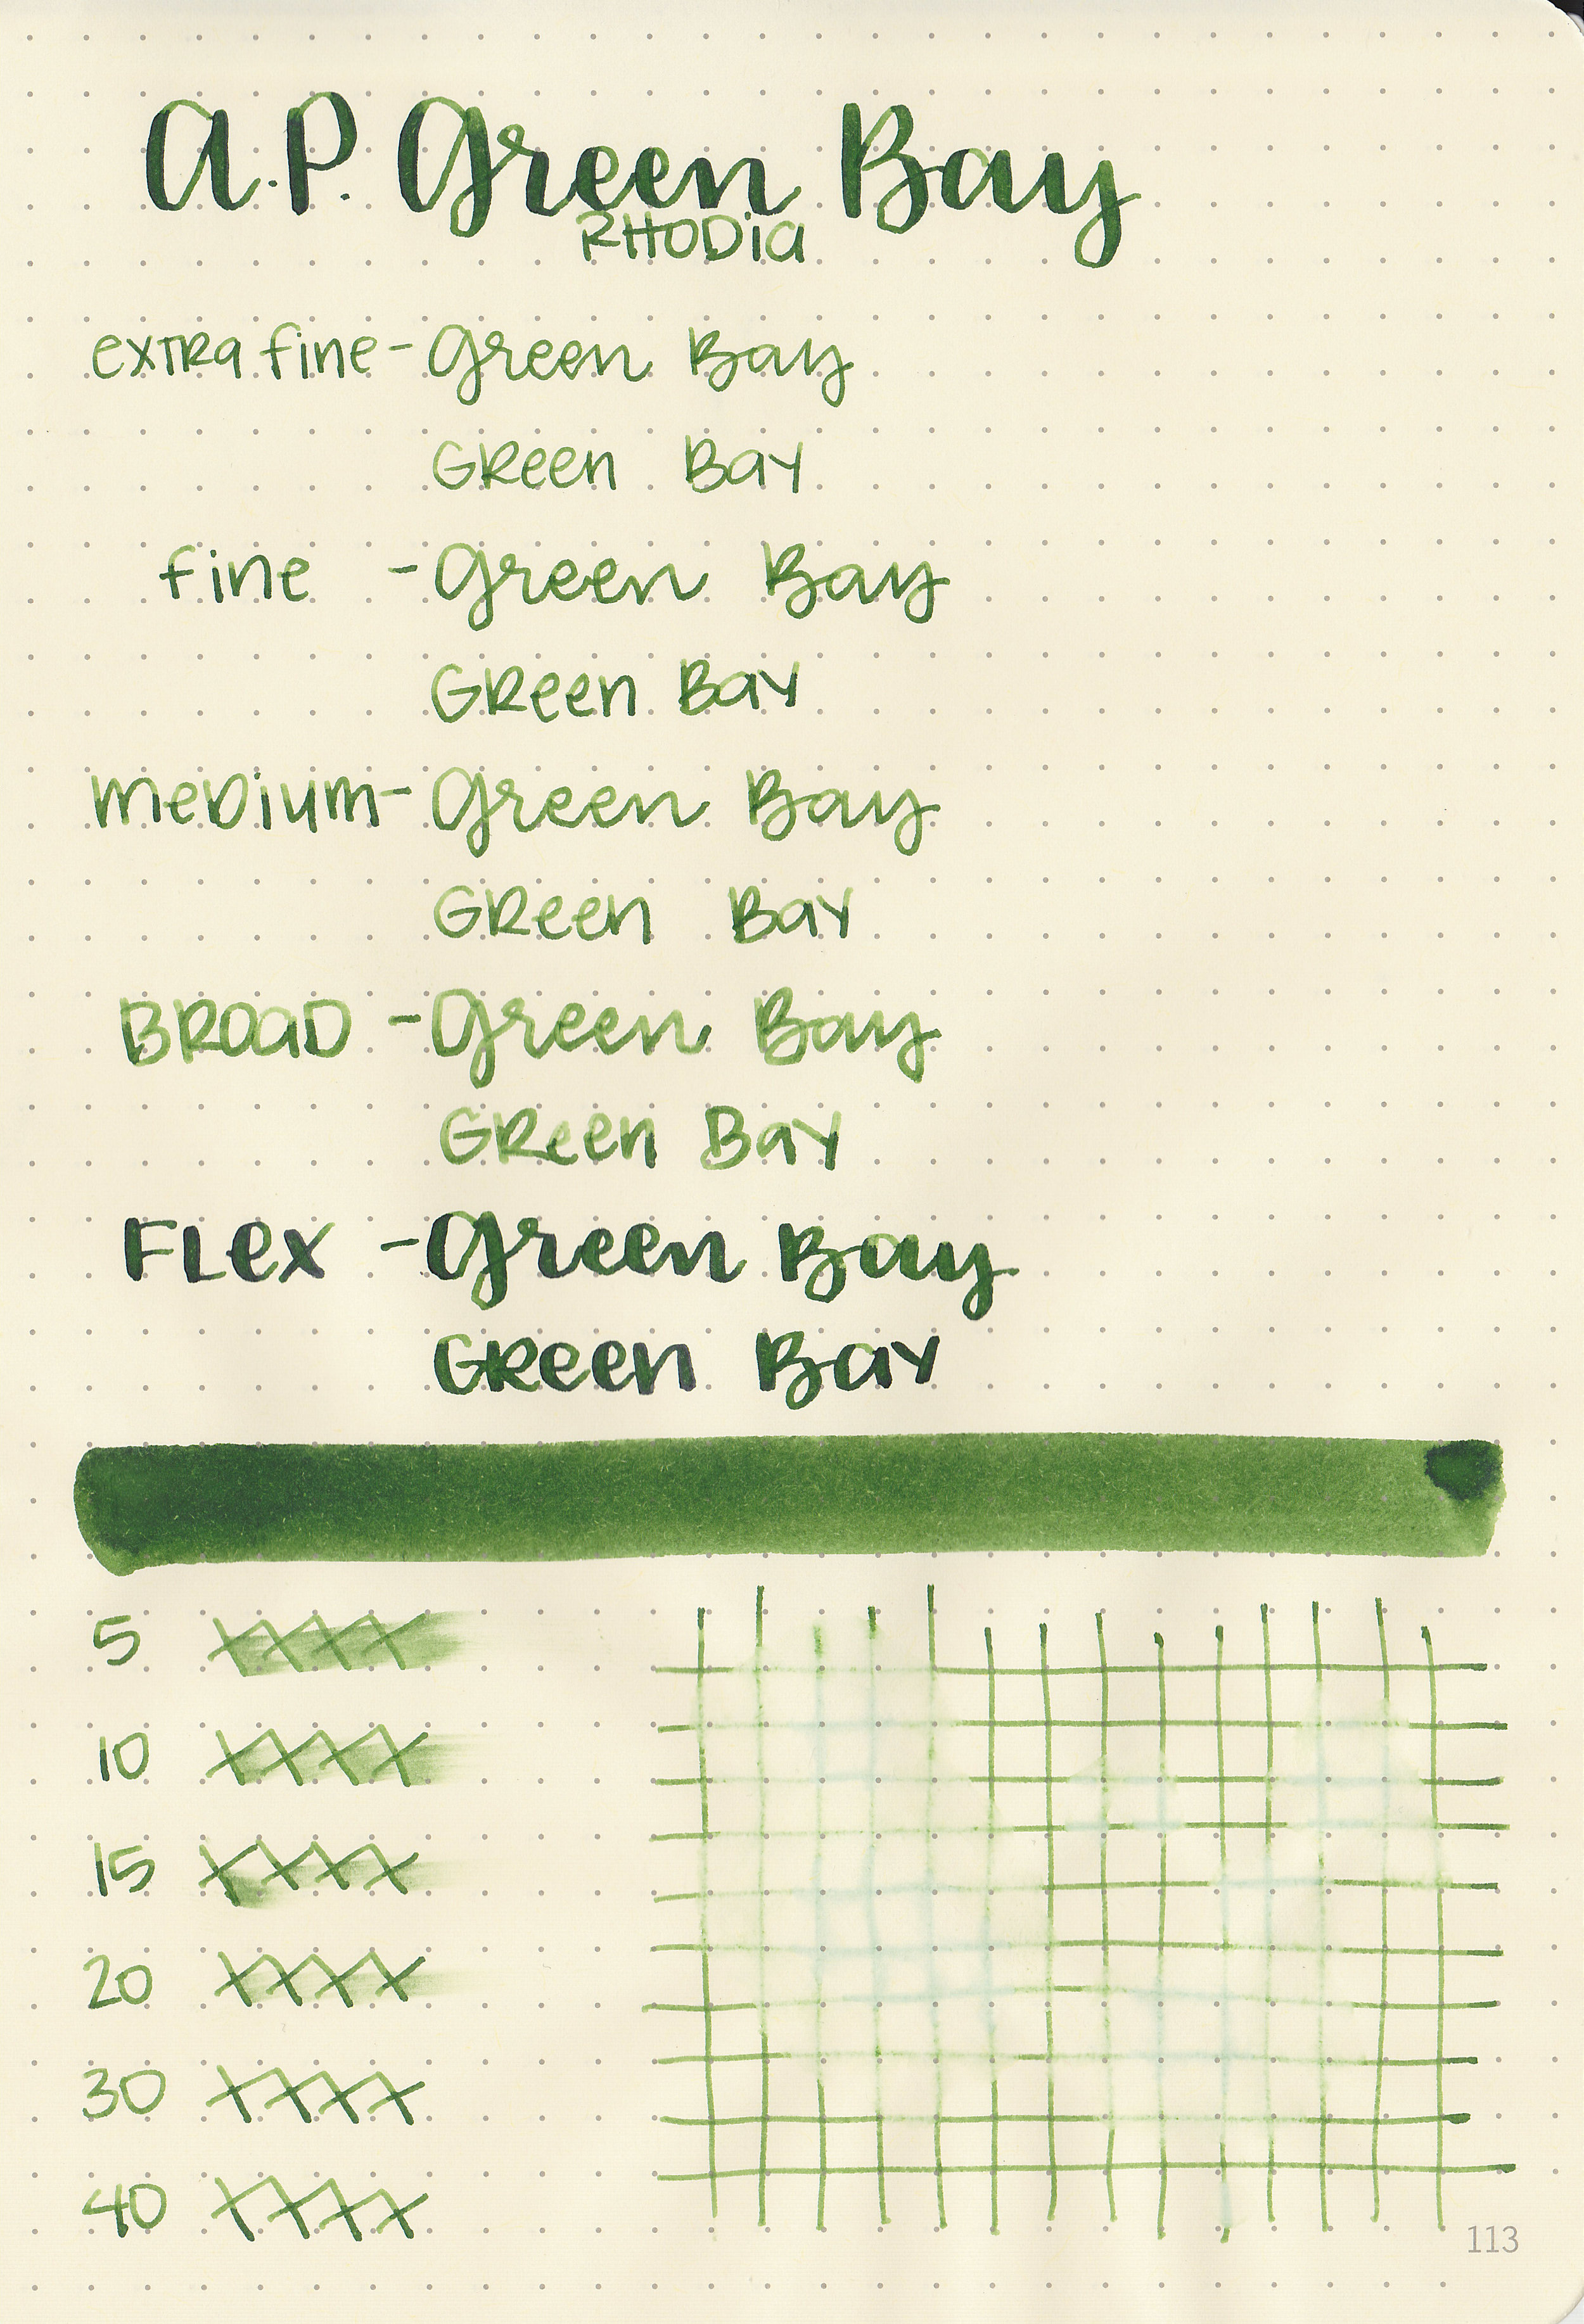 a.P. Green Bay
RHODia
exTRa fine - Green Bay
GReen Bay
fine - Green Bay
GReen Bay
meDium - Green Bay
GReen Bay
BROaD - Green Bay
GReen Bay
FLex - Green Bay
GReen Bay
5
10
15
20
30
40
113